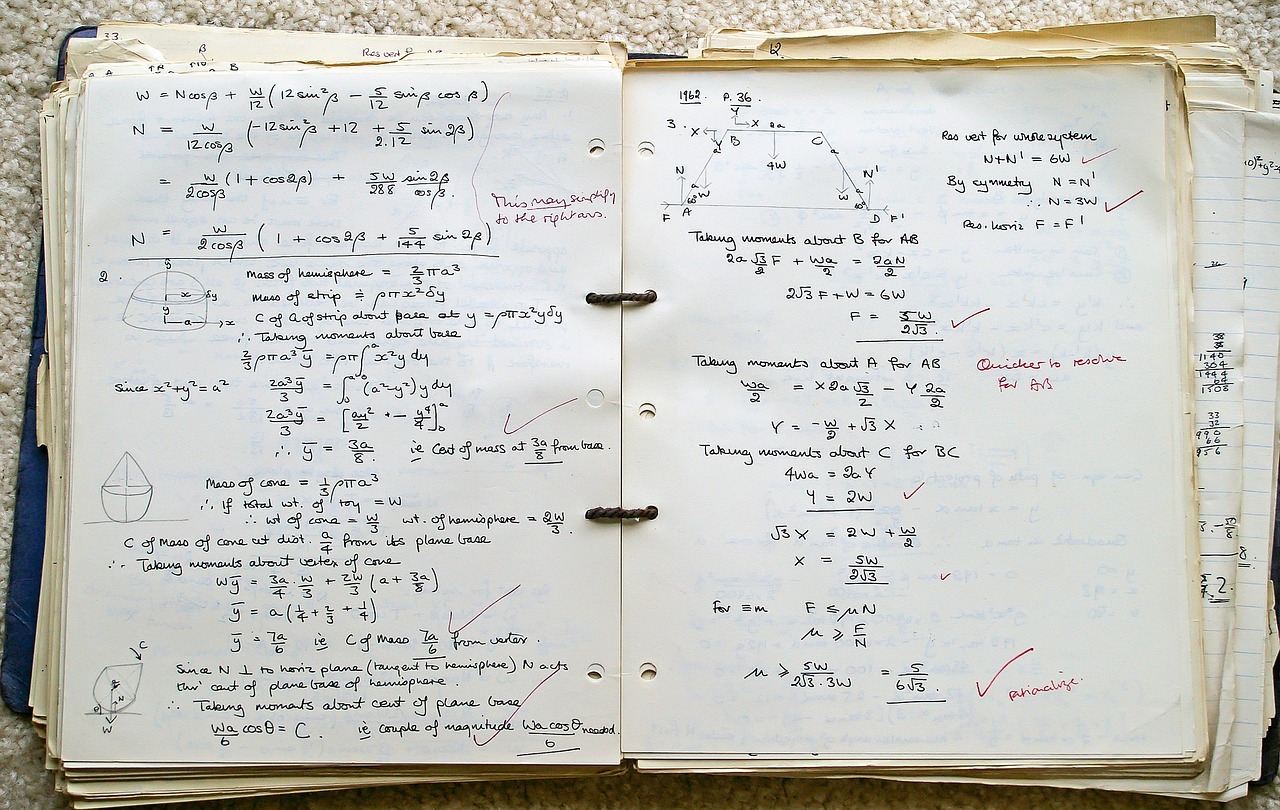 33.
β
Res vert
W = N cos β + W/12 (12 sin²β − 5/12 sin β cos β)
N = W/12cosβ (−12 sin²β + 12 + 5/2.12 sin 2β)
= W/2cosβ (1 + cos 2β) + 5W/288 sin2β/cosβ.
This may simplify
to the right ans.
N = W/2cosβ (1 + cos 2β + 5/144 sin 2β)
2.
y
x δy
y
a x
Mass of hemisphere = 2/3 πa³
Mass of strip ≑ ρπx²δy
C of G of strip about base at y = ρπx²yδy
∴ Taking moments about base
2/3 ρπa³ȳ = ρπ∫₀ᵃ x²y dy
Since x²+y²=a² 2a³ȳ/3 = ∫₀ᵃ (a²−y²) y dy
2a³ȳ/3 = [ay²/2 − y⁴/4]₀ᵃ
∴ ȳ = 3a/8 ie Cent of mass at 3a/8 from base.
Mass of cone = 1/3 ρπa³
∴ If total wt. of toy = W
∴ wt of cone = W/3 wt. of hemisphere = 2W/3.
C of Mass of cone at dist. a/4 from its plane base
∴ Taking moments about vertex of cone
Wȳ = 3a/4 . W/3 + 2W/3 (a + 3a/8)
ȳ = a(1/4 + 2/3 + 1/4)
ȳ = 7a/6 ie C of Mass 7a/6 from vertex.
C
N
θ
W
Since N ⊥ to horiz plane (tangent to hemisphere) N acts
thro' cent of plane base of hemisphere.
∴ Taking moments about cent of plane base
Wa/6 cosθ = C. ie couple of magnitude Wa cosθ/6 needed.
12.
1962. P. 36.
Y
3. X X 2a
Y B C
a a
4W
N N'
a W W a
60° 60°
F A D F'
Res vert for whole system
N+N' = 6W
By symmetry N = N'
∴ N = 3W
Res. horiz F = F'
Taking moments about B for AB
2a √3/2 F + Wa/2 = 2aN/2
2√3 F + W = 6W
F = 5W/2√3.
Taking moments about A for AB
Quicker to resolve
for AB
Wa/2 = X 2a √3/2 − Y 2a/2
Y = −W/2 + √3 X
Taking moments about C for BC
4Wa = 2aY
Y = 2W
√3 X = 2W + W/2
X = 5W/2√3
For ≡m F ≤ μN
μ ≥ F/N
μ ≥ 5W/2√3.3W = 5/6√3.
rationalize.
38
38
1140
304
1444
64
1508
33
32
990
66
956